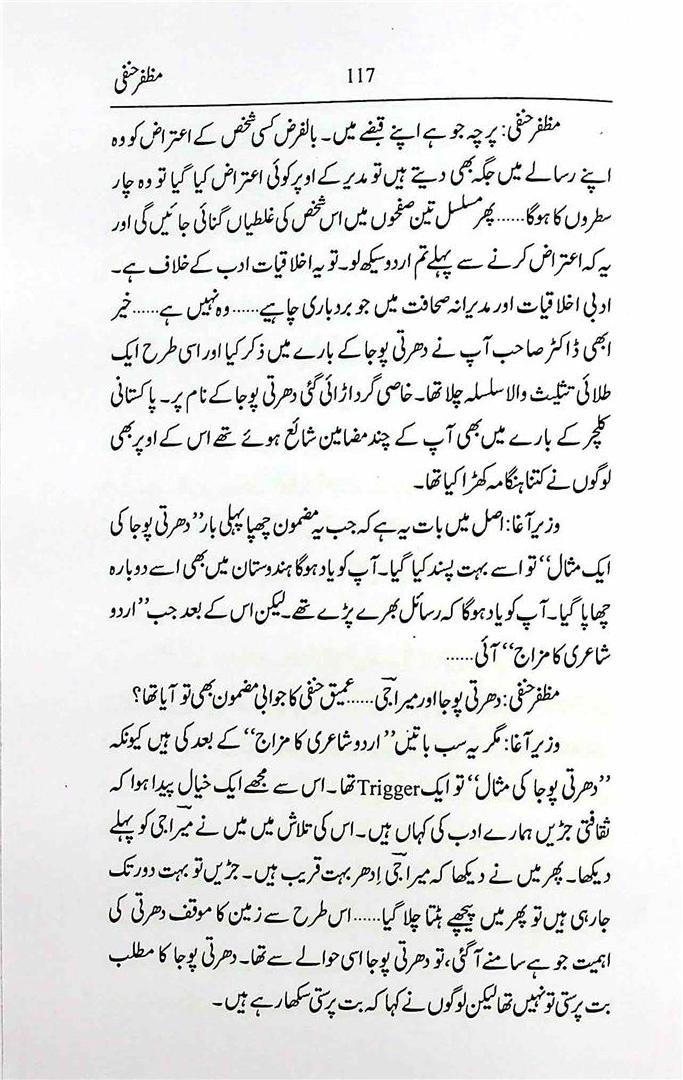 مظفر حنفی 117
مظفر حنفی: پرچہ جو ہے اپنے قبضے میں۔ بالفرض کسی شخص کے اعتراض کو وہ
اپنے رسالے میں جگہ بھی دیتے ہیں تو مدیر کے اوپر کوئی اعتراض کیا گیا تو وہ چار
سطروں کا ہوگا...... پھر مسلسل تین صفحوں میں اس شخص کی غلطیاں گنائی جائیں گی اور
یہ کہ اعتراض کرنے سے پہلے تم اردو سیکھ لو۔ تو یہ اخلاقیات ادب کے خلاف ہے۔
ادبی اخلاقیات اور مدیرانہ صحافت میں جو بردباری چاہیے...... وہ نہیں ہے...... خیر
ابھی ڈاکٹر صاحب آپ نے دھرتی پوجا کے بارے میں ذکر کیا اور اسی طرح ایک
طلائی تثلیث والا سلسلہ چلا تھا۔ خاصی گرد اڑائی گئی دھرتی پوجا کے نام پر۔ پاکستانی
کلچر کے بارے میں بھی آپ کے چند مضامین شائع ہوئے تھے اس کے اوپر بھی
لوگوں نے کتنا ہنگامہ کھڑا کیا تھا۔
وزیر آغا: اصل میں بات یہ ہے کہ جب یہ مضمون چھپا پہلی بار ”دھرتی پوجا کی
ایک مثال“ تو اسے بہت پسند کیا گیا۔ آپ کو یاد ہوگا ہندوستان میں بھی اسے دوبارہ
چھاپا گیا۔ آپ کو یاد ہوگا کہ رسائل بھرے پڑے تھے۔ لیکن اس کے بعد جب ”اردو
شاعری کا مزاج“ آئی......
مظفر حنفی: دھرتی پوجا اور میراجی...... عمیق حنفی کا جوابی مضمون بھی تو آیا تھا؟
وزیر آغا: مگر یہ سب باتیں ”اردو شاعری کا مزاج“ کے بعد کی ہیں کیونکہ
”دھرتی پوجا کی مثال“ تو ایک Trigger تھا۔ اس سے مجھے ایک خیال پیدا ہوا کہ
ثقافتی جڑیں ہمارے ادب کی کہاں ہیں۔ اس کی تلاش میں میں نے میراجی کو پہلے
دیکھا۔ پھر میں نے دیکھا کہ میراجی اِدھر بہت قریب ہیں۔ جڑیں تو بہت دور تک
جا رہی ہیں تو پھر میں پیچھے ہٹتا چلا گیا...... اس طرح سے زمین کا موقف دھرتی کی
اہمیت جو ہے سامنے آ گئی، تو دھرتی پوجا اسی حوالے سے تھا۔ دھرتی پوجا کا مطلب
بت پرستی تو نہیں تھا لیکن لوگوں نے کہا کہ بت پرستی سکھا رہے ہیں۔